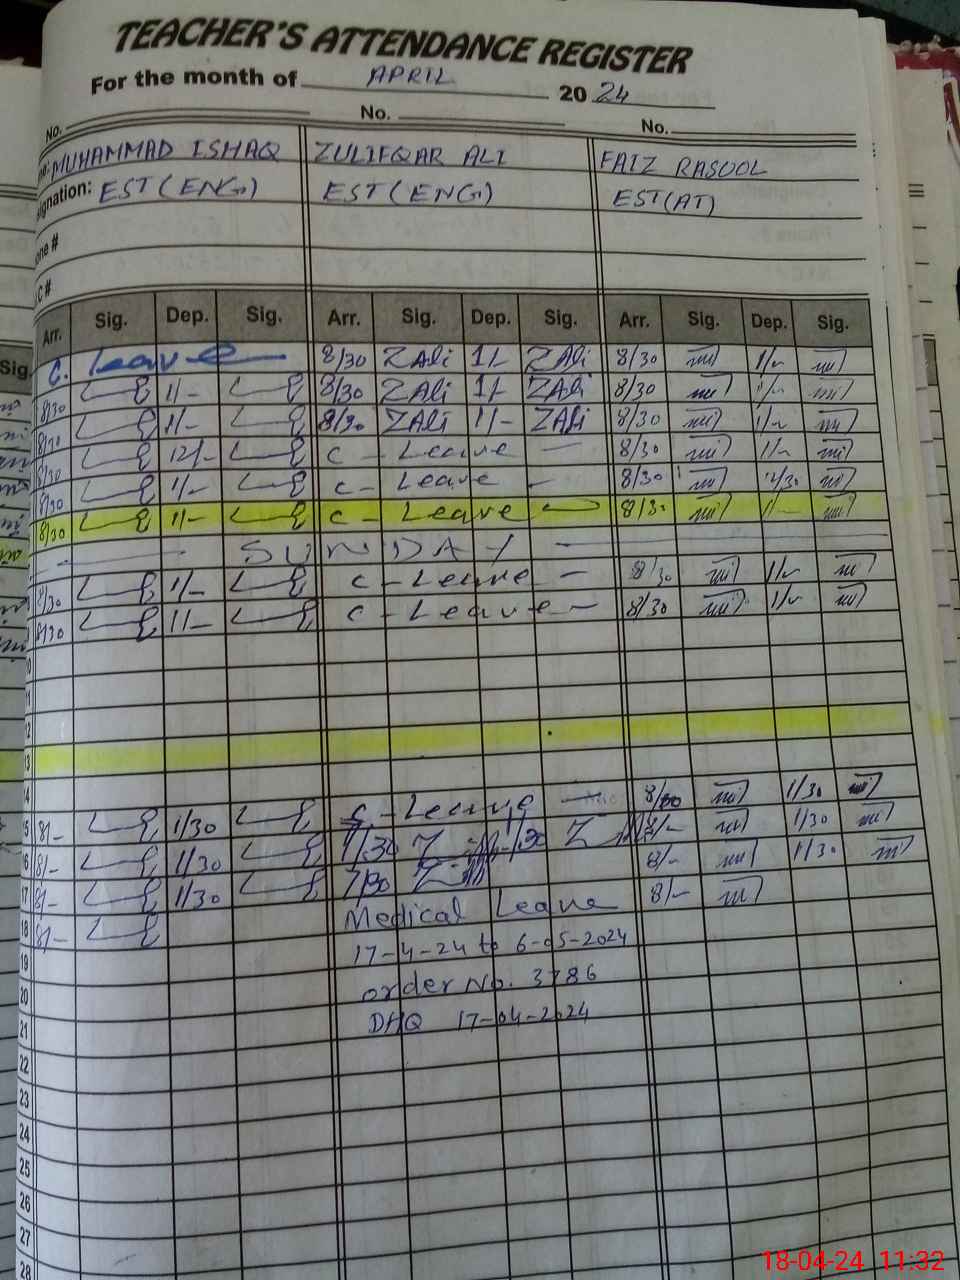 TEACHER'S ATTENDANCE REGISTER
For the month of APRIL 2024
No. No. No.
MUHAMMAD ISHAQ ZULIFQAR ALI FAIZ RASOOL
signation: EST (ENG) EST (ENG) EST (AT)
one #
C #
Arr. Sig. Dep. Sig. Arr. Sig. Dep. Sig. Arr. Sig. Dep. Sig.
C. Leave 8/30 ZAli 1/- ZAli 8/30 1/-
8/30 1/- 8/30 ZAli 1/- ZAli 8/30 1/-
8/30 1/- 8/30 ZAli 1/- ZAli 8/30 1/-
8/30 12/- C - Leave - 8/30 1/-
8/30 1/- C - Leave - 8/30 12/30
8/30 1/- C - Leave - 8/30 1/-
SUNDAY
8/30 1/- C - Leave - 8/30 1/-
8/30 1/- C - Leave - 8/30 1/-
14 C - Leave - 1/30
15 8/- 1/30 1/30 1/30 8/- 1/30
16 8/- 1/30 7/30 8/- 1/30
17 8/- 1/30 Medical Leave 8/-
18 8/- 17-4-24 to 6-05-2024
19 order No. 3786
20 DHQ 17-04-2024
21
22
23
24
25
26
27
28
18-04-24 11:32